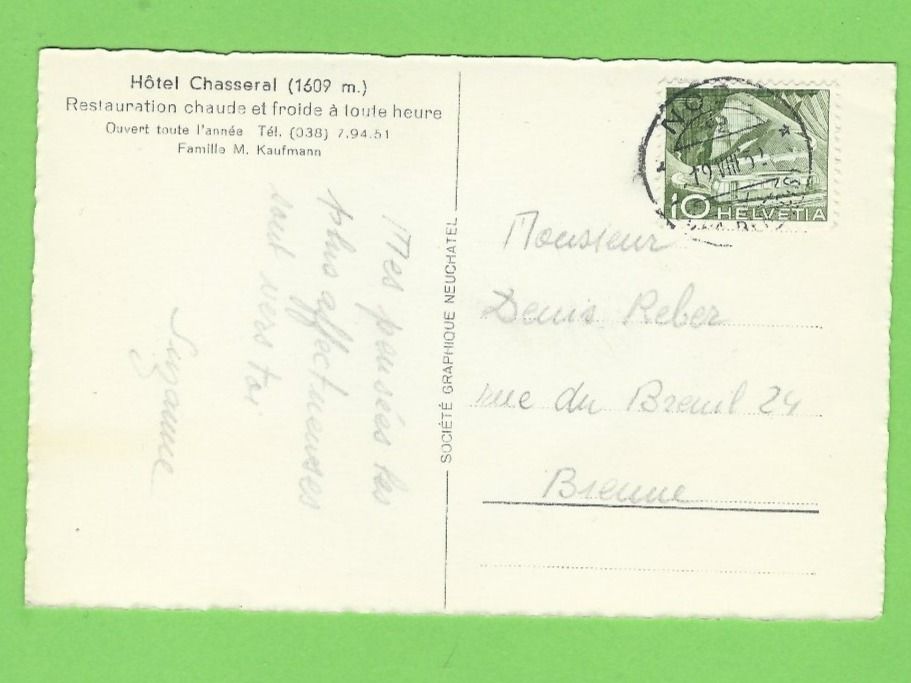 Hôtel Chasseral (1609 m.)
Restauration chaude et froide à toute heure
Ouvert toute l'année Tél. (038) 7.94.51
Famille M. Kaufmann
Mes pensées les
plus affectueuses
sont vers toi
Suzanne
SOCIÉTÉ GRAPHIQUE NEUCHATEL
10 HELVETIA
19 VIII 5
Monsieur
Denis Reber
rue du Breuil 24
Bienne